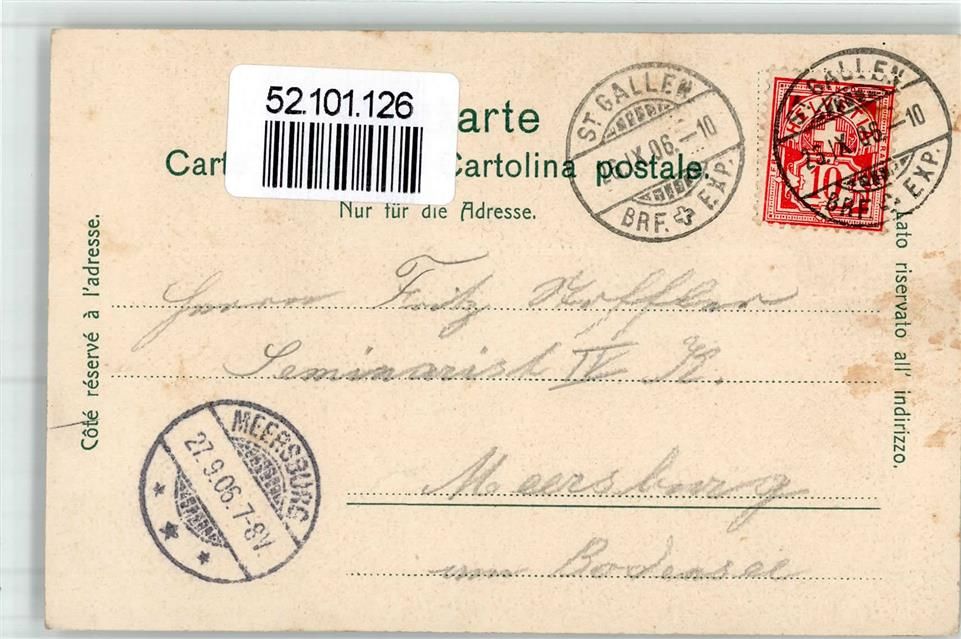 52.101.126
arte
Cart Cartolina postale.
Nur für die Adresse.
ST. GALLEN
IX. 06. – 10
BRF. EXP.
GALLEN
IX. 06. – 10
BRF. EXP.
10
Côté réservé à l'adresse.
Lato riservato all' indirizzo.
Herrn Fritz
Seminarist IV K.
Meersburg
am Bodensee
MEERSBURG
27.9.06.7-8V.